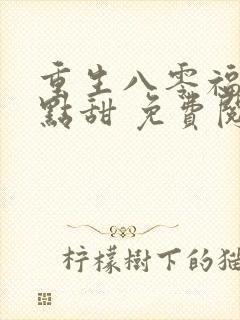 重生八零福
點甜 免費閱
柠檬樹下的猫